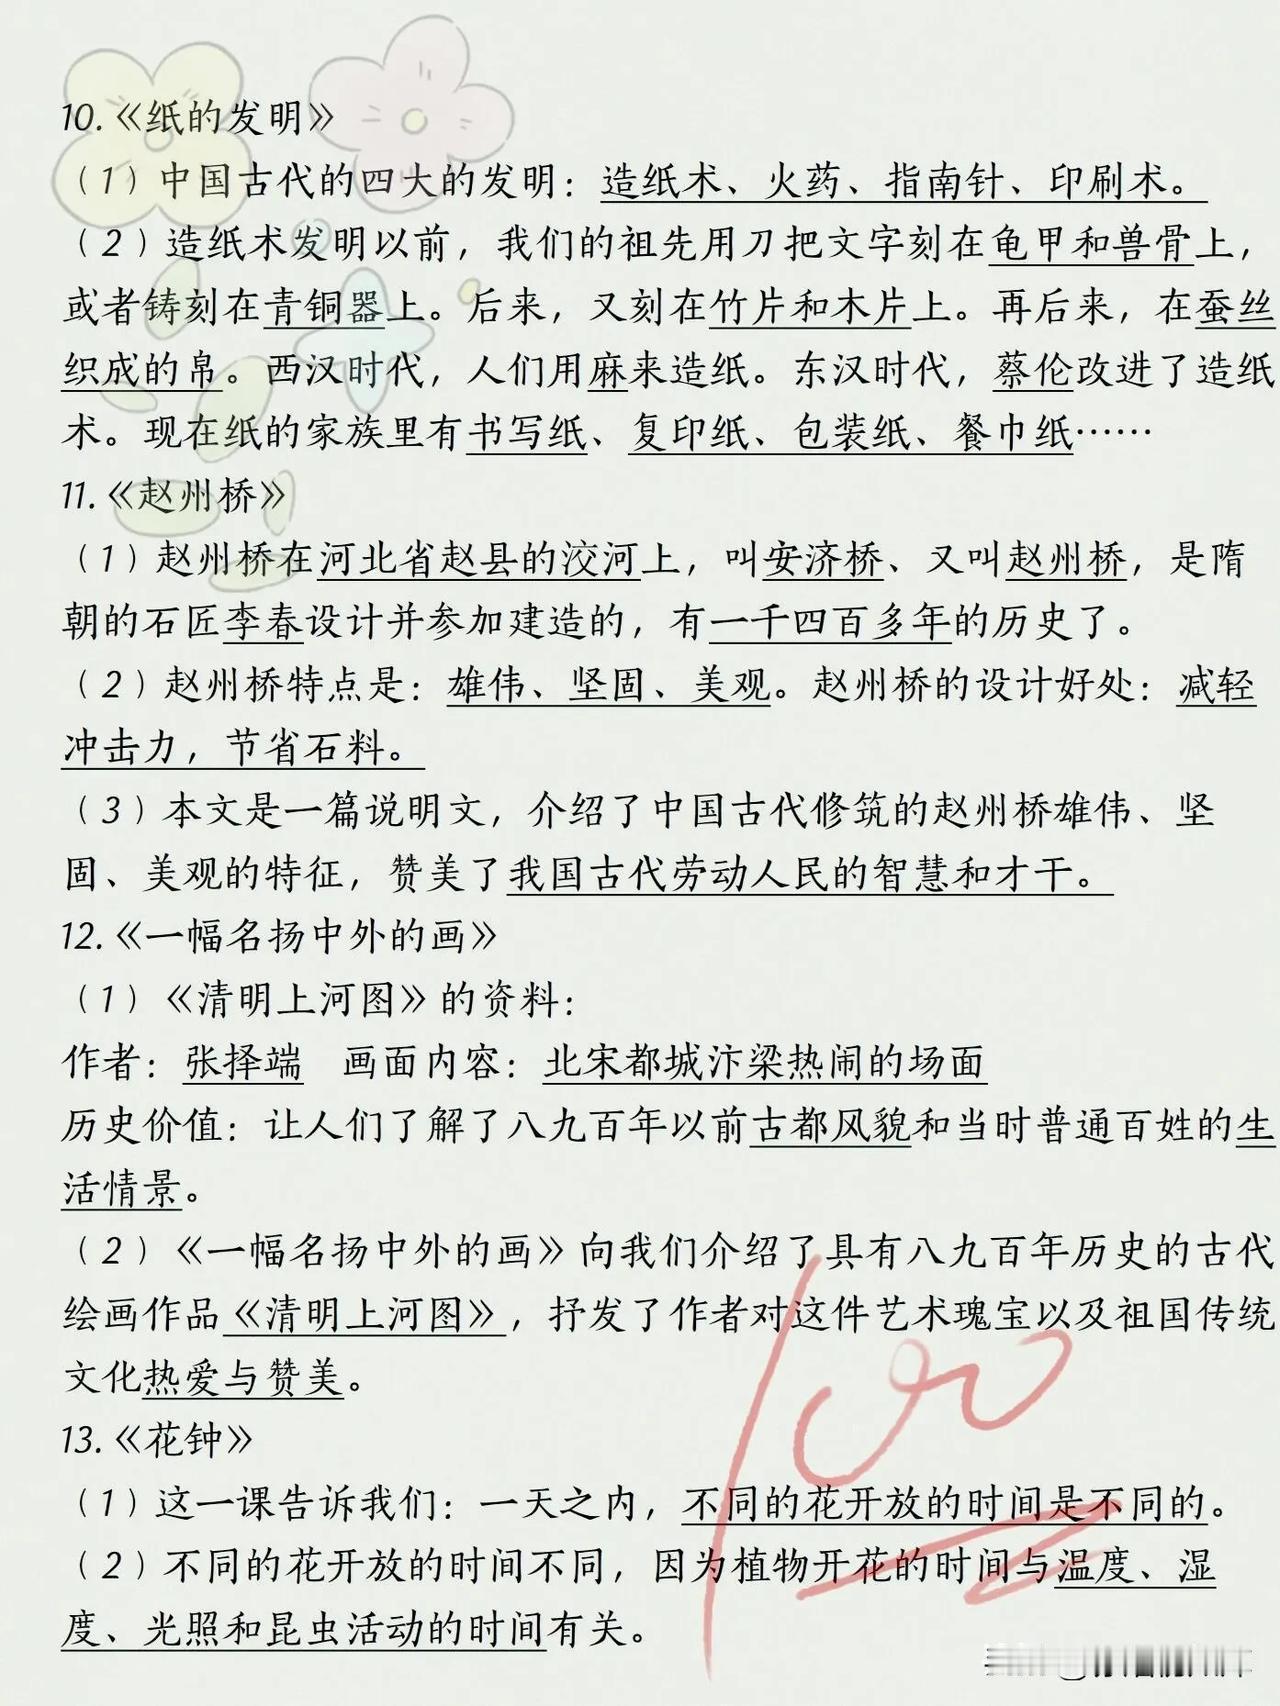 10.《纸的发明》
（1）中国古代的四大的发明：造纸术、火药、指南针、印刷术。
（2）造纸术发明以前，我们的祖先用刀把文字刻在龟甲和兽骨上，
或者铸刻在青铜器上。后来，又刻在竹片和木片上。再后来，在蚕丝
织成的帛。西汉时代，人们用麻来造纸。东汉时代，蔡伦改进了造纸
术。现在纸的家族里有书写纸、复印纸、包装纸、餐巾纸……
11.《赵州桥》
（1）赵州桥在河北省赵县的洨河上，叫安济桥、又叫赵州桥，是隋
朝的石匠李春设计并参加建造的，有一千四百多年的历史了。
（2）赵州桥特点是：雄伟、坚固、美观。赵州桥的设计好处：减轻
冲击力，节省石料。
（3）本文是一篇说明文，介绍了中国古代修筑的赵州桥雄伟、坚
固、美观的特征，赞美了我国古代劳动人民的智慧和才干。
12.《一幅名扬中外的画》
（1）《清明上河图》的资料：
作者：张择端 画面内容：北宋都城汴梁热闹的场面
历史价值：让人们了解了八九百年以前古都风貌和当时普通百姓的生
活情景。
（2）《一幅名扬中外的画》向我们介绍了具有八九百年历史的古代
绘画作品《清明上河图》，抒发了作者对这件艺术瑰宝以及祖国传统
文化热爱与赞美。
13.《花钟》
（1）这一课告诉我们：一天之内，不同的花开放的时间是不同的。
（2）不同的花开放的时间不同，因为植物开花的时间与温度、湿
度、光照和昆虫活动的时间有关。
100